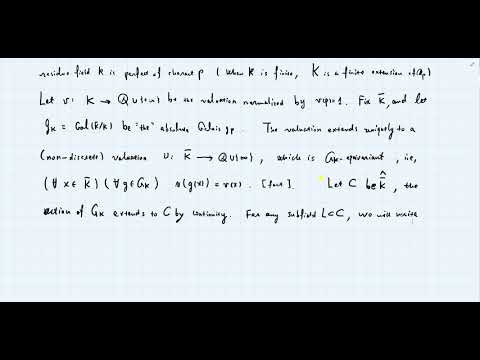 residue field k is perfect of charact p ( when k is finite, K is a finite extension of Qp )
Let v: K → Q ∪ {∞} be the valuation normalized by v(p)=1. Fix K̄, and let
G_K = Gal(K̄/K) be "the" absolute Galois gp. The valuation extends uniquely to a
(non-discrete) valuation v: K̄ → Q ∪ {∞}, which is G_K-equivariant, i.e,
(∀ x ∈ K̄) (∀ g ∈ G_K) v(g(x)) = v(x). [fact]. Let C be K̄̂, the
action of G_K extends to C by continuity. For any subfield L ⊂ C, we will write